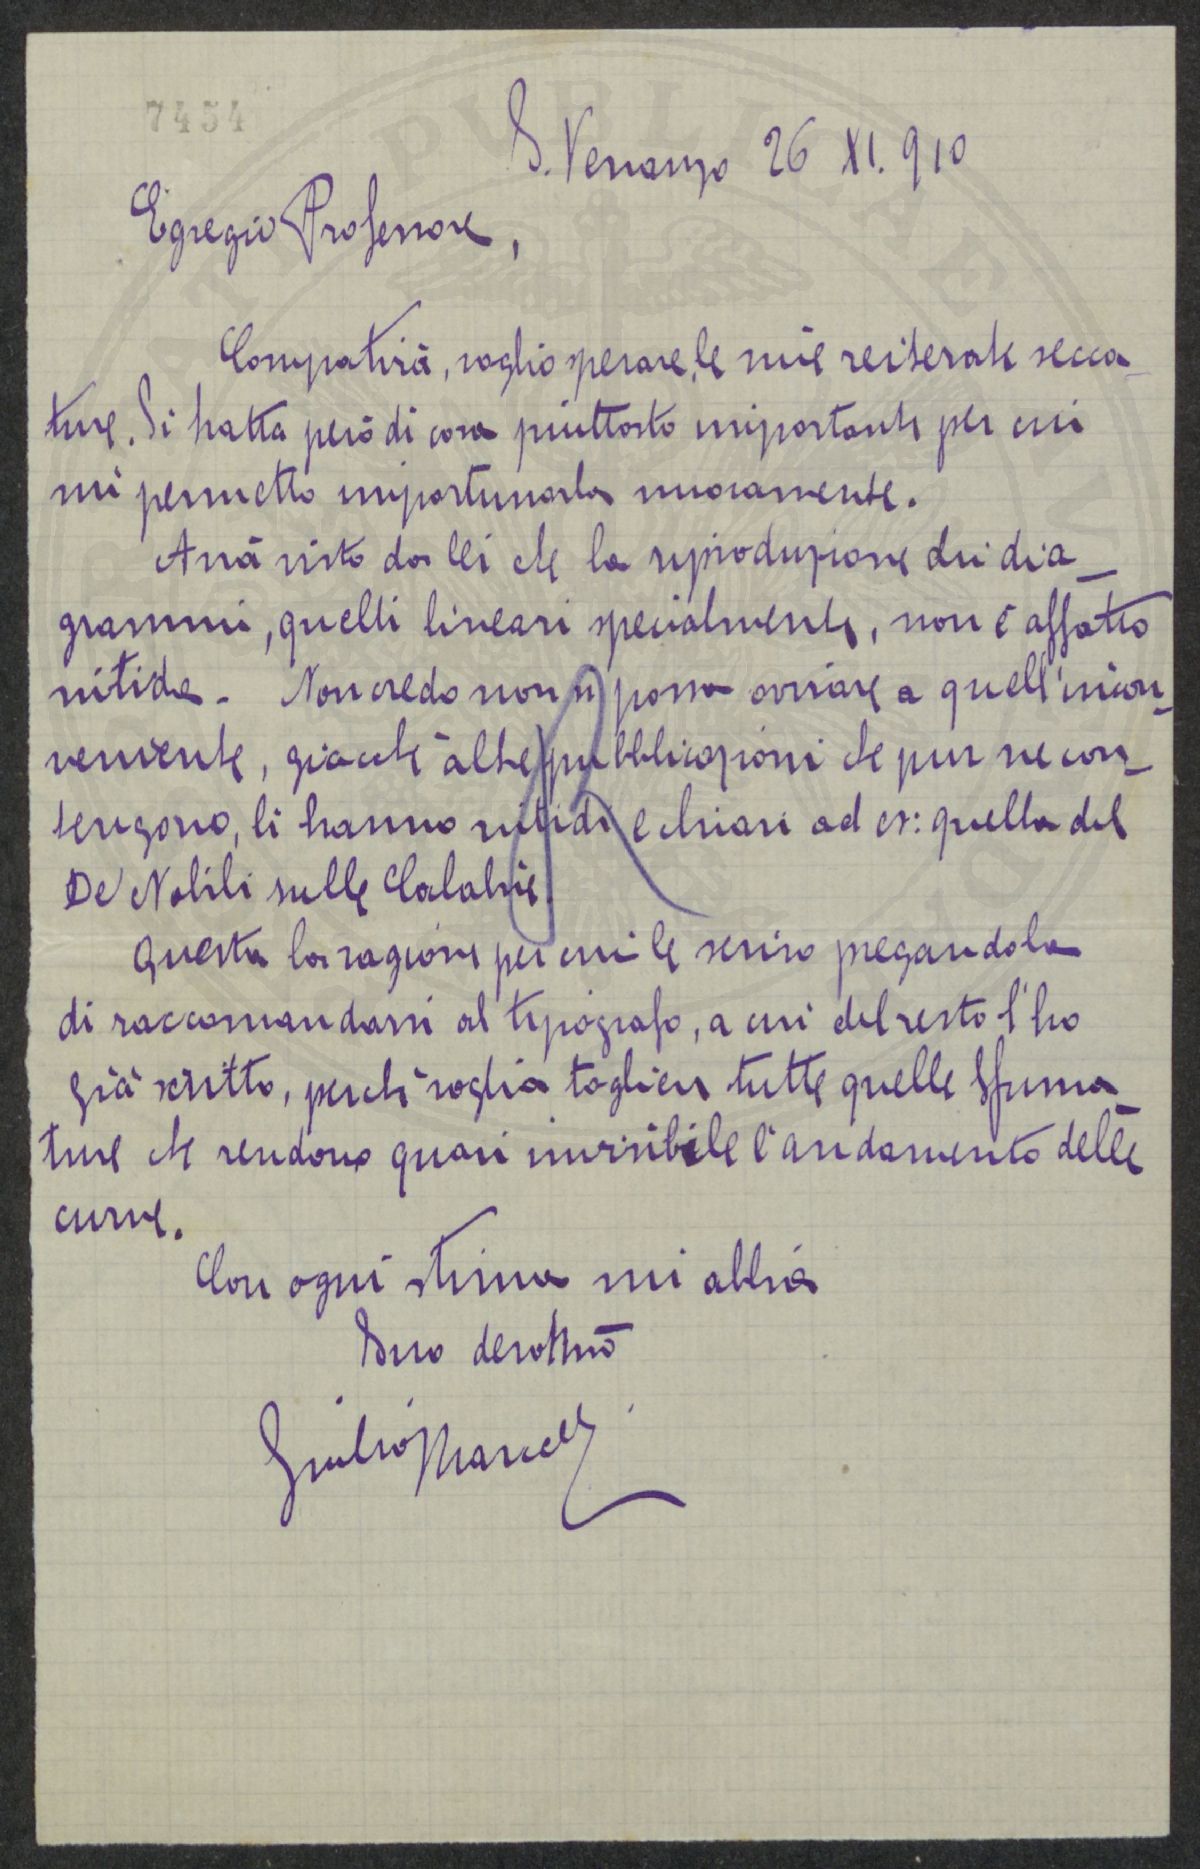 7454
S. Venanzo 26 XI. 910
Egregio Professore,
Compatirà, voglio sperare, le mie reiterate secca-
ture. Si tratta però di cosa piuttosto importante per cui
mi permetto importunarla nuovamente.
Avrà visto da lei che la riproduzione dei dia-
grammi, quelli lineari specialmente, non è affatto
nitida. Non credo non si possa ovviare a quell'incon-
veniente, giacchè altre pubblicazioni che pur ne con-
tengono, li hanno nitidi e chiari ad es: quella del
De Nobili sulle Calabrie.
Questa la ragione per cui le scrivo pregandola
di raccomandarsi al tipografo, a cui del resto l'ho
già scritto, perchè voglia togliere tutte quelle sfuma-
ture che rendono quasi invisibile l'andamento delle
curve.
Con ogni stima mi abbia
Suo devotmo
Giulio Marcelli